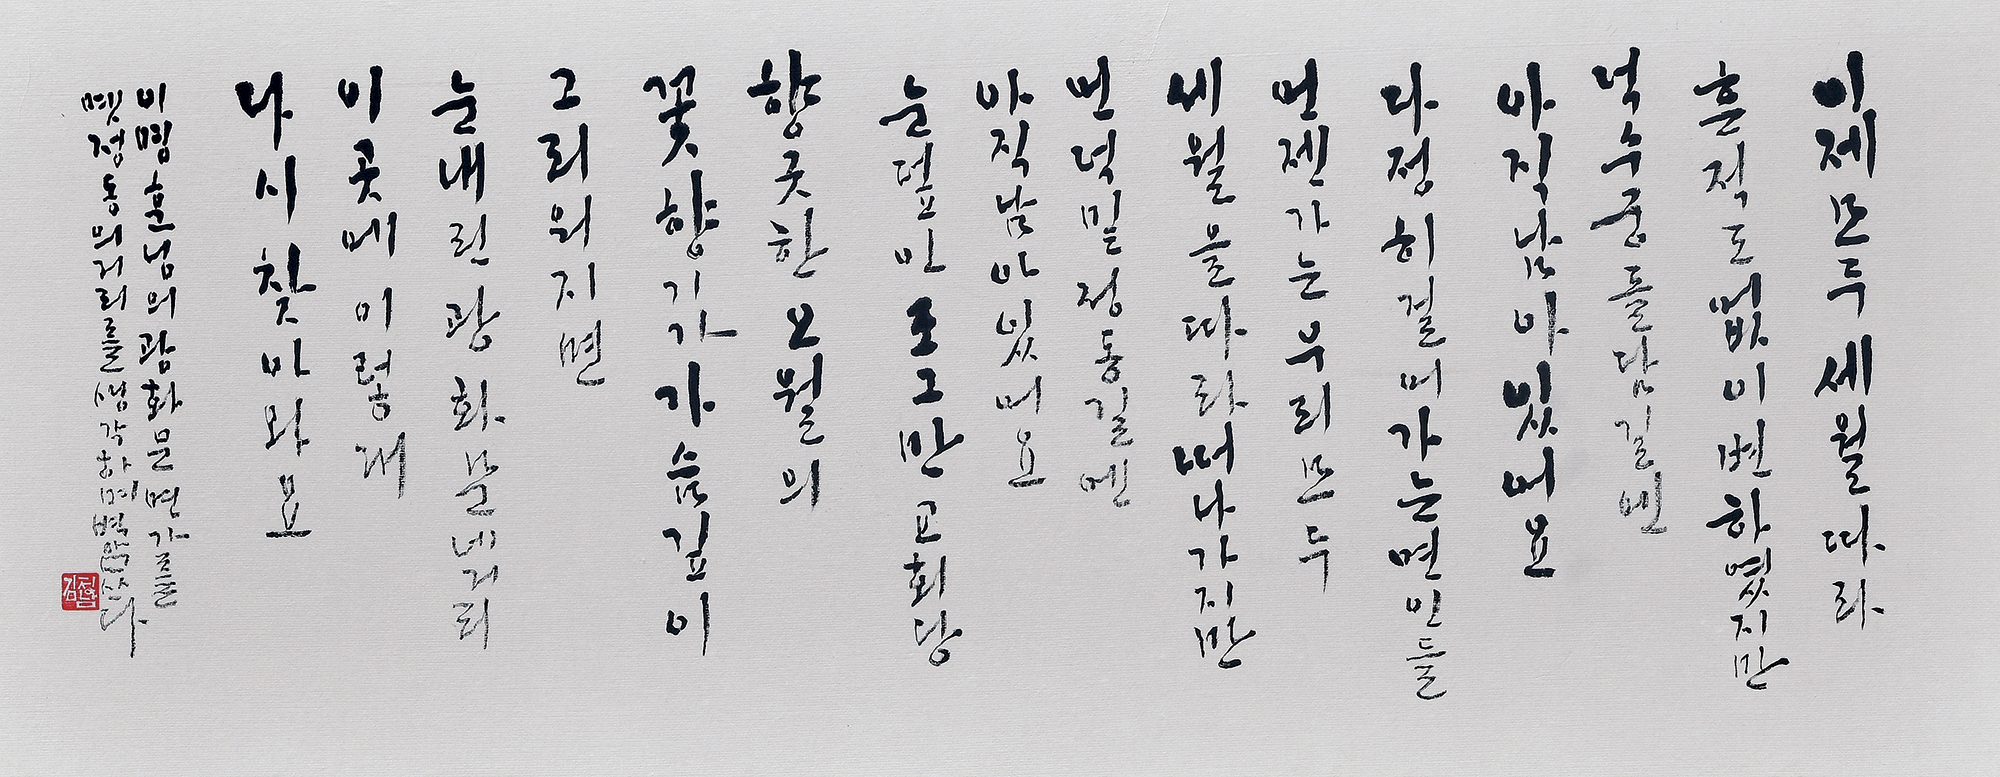 이제 모두 세월따라
흔적도 없이 변하였지만
덕수궁 돌담길엔
아직 남아 있어요
다정히 걸어가는 연인들
언젠가는 우리 모두
세월을 따라 떠나가지만
언덕밑 정동길엔
아직 남아 있어요
눈덮인 조그만 교회당
향긋한 오월의
꽃향기가 가슴깊이
그리워지면
눈내린 광화문 네거리
이곳에 이렇게
다시 찾아와요
이영훈님의 광화문 연가를
옛 정동의 거리를 생각하며 쓰다